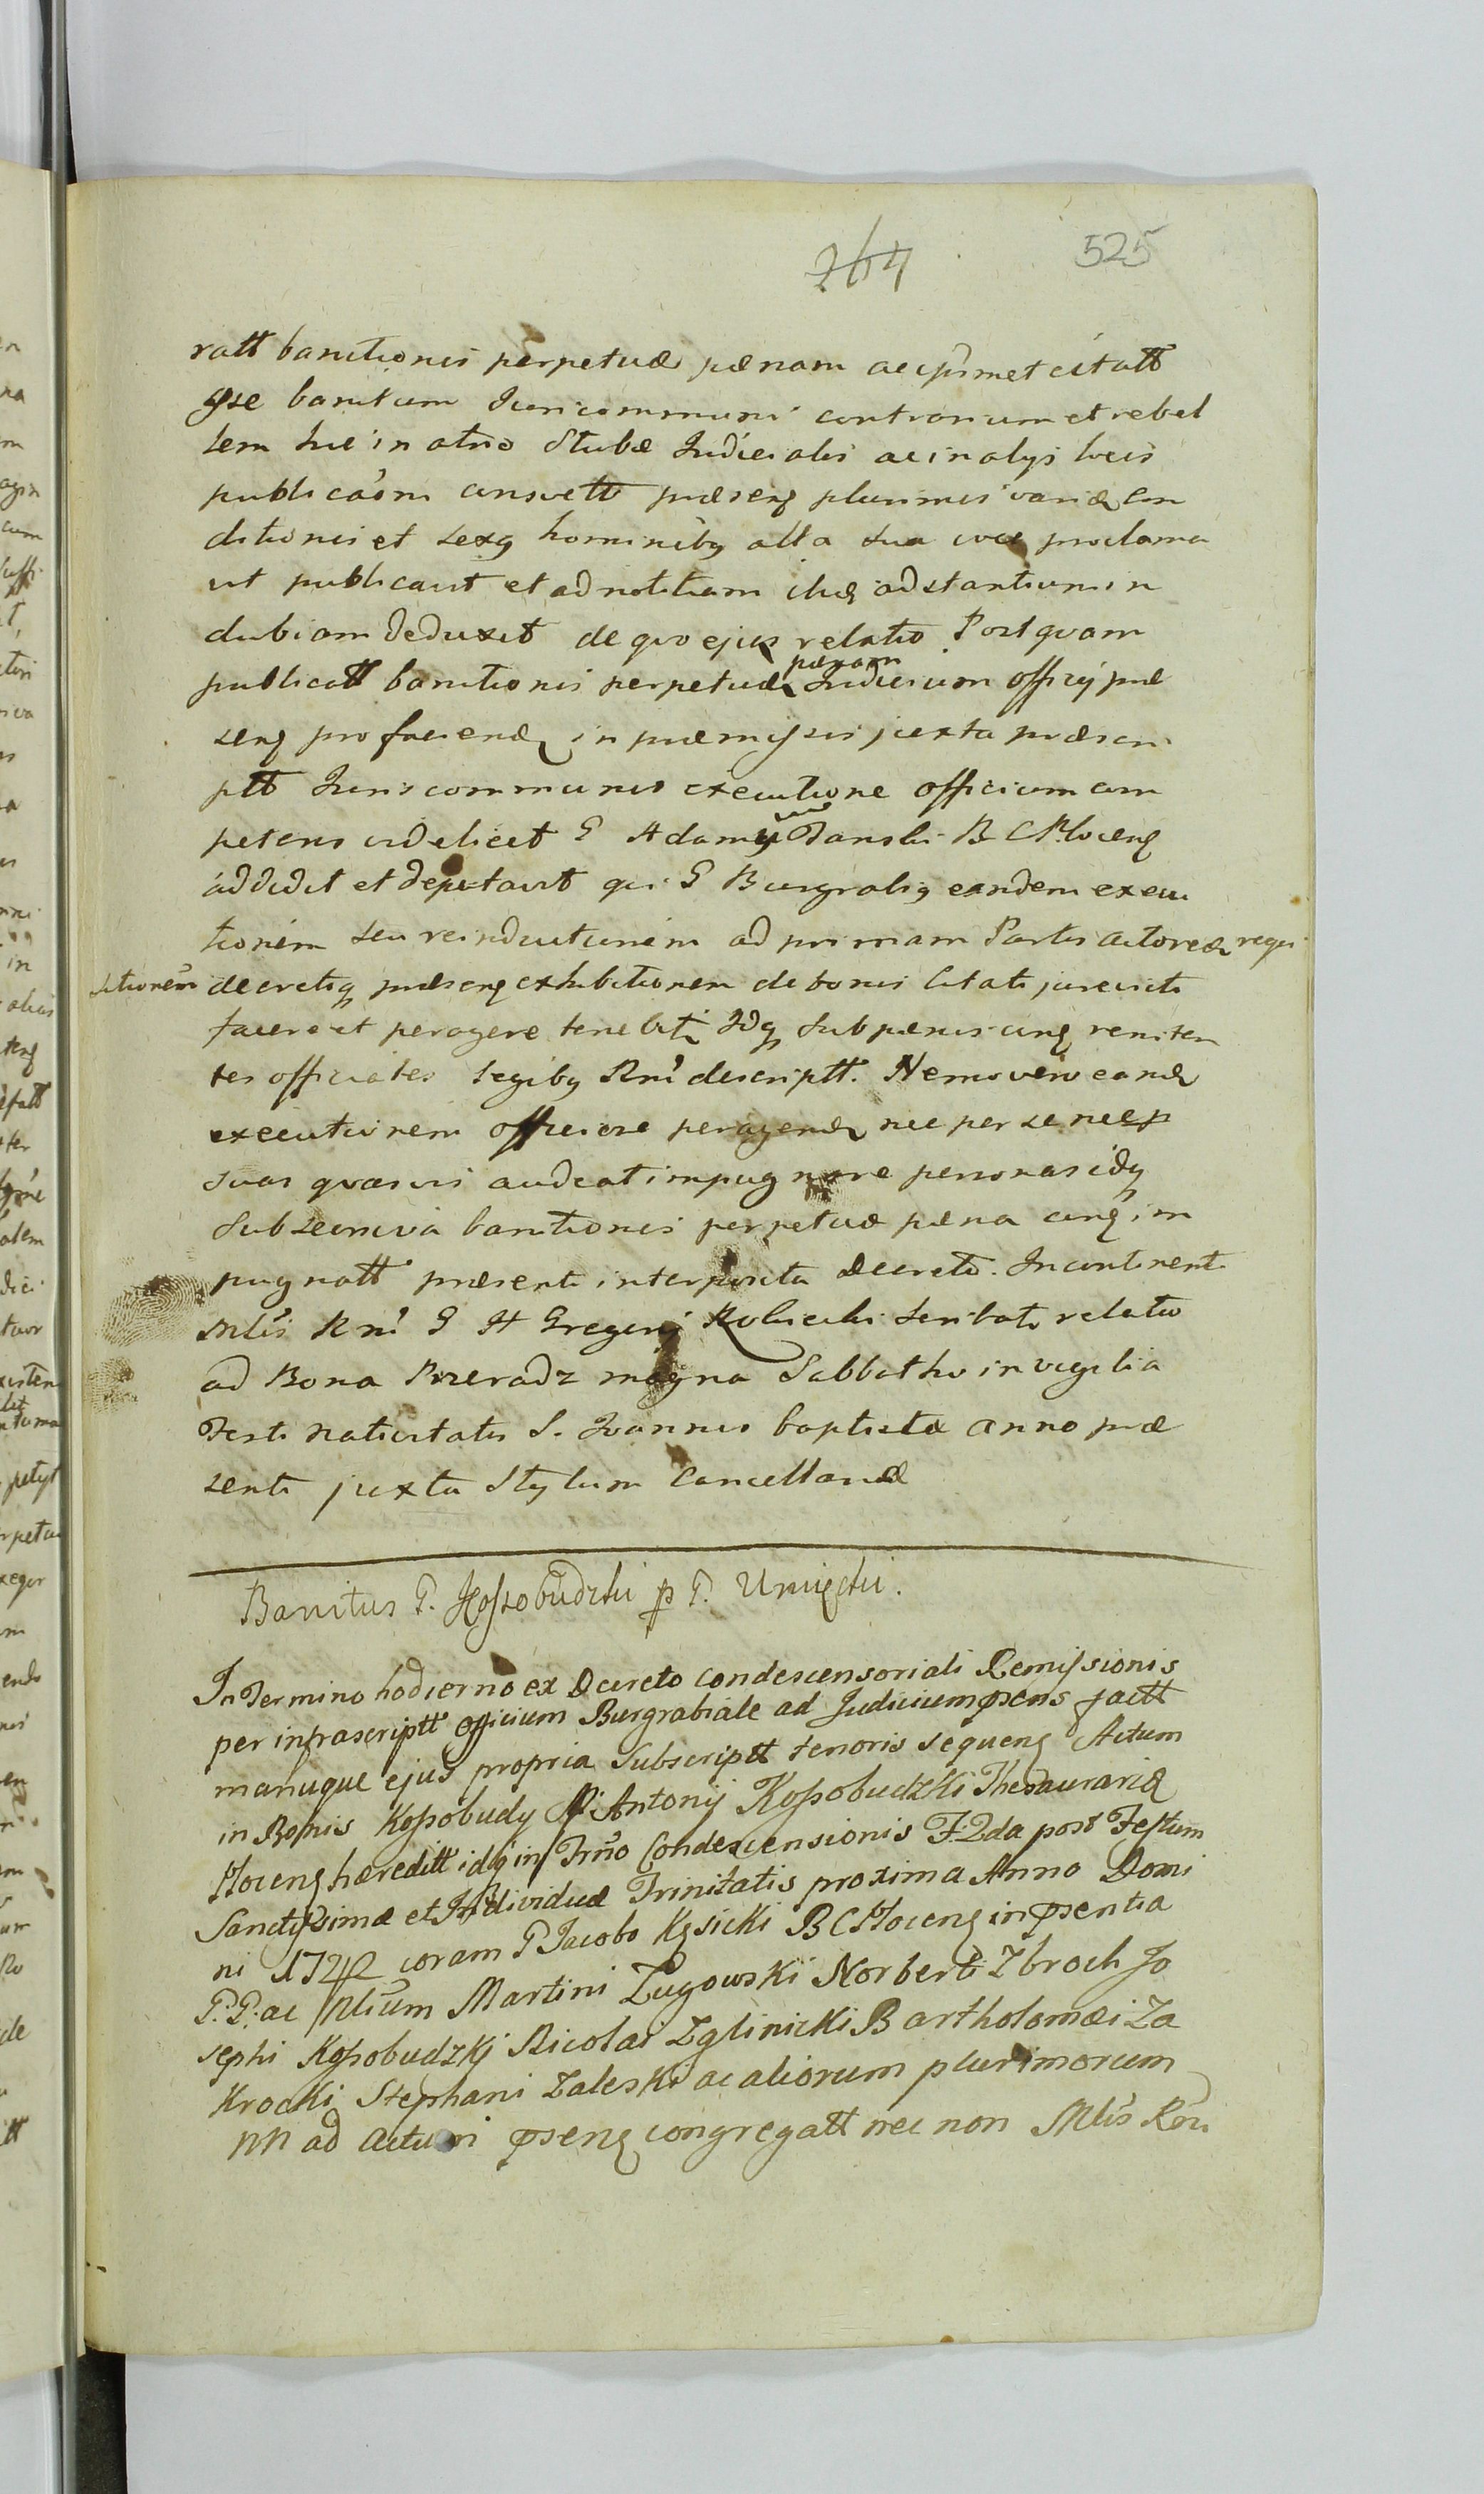 764 525
ratt banitionis perpetuæ pœnam ac ipsmet citatt
qse banitum Juri communi contrarium et rebel
lem hic in atrio Stubæ Judicialis ac in alys locis
publicaõni consvett præsenq plurimis variæ con
ditionis et sexq hominibq alta sua voce proclama
vit publicavit et ad notitiam adstantium in
dubiam deduxit de quo ejus relatio Postquam
publicatt banitionis perpetuæ pænam Judicium officij præ
senq pro facienda in præmissis juxta præscri
ptt Juris communis executione officium com
petens videlicet G Adamu Danski B C Plocenq
addidit et deputavit qui G Burgrabiq eandem execu
tionem seu reinductionem ad primam Partis actoreæ requi
sitionem decretiq præsenq exhibitionem de bonis Citati jurevicti
facere et peragere tenebit idq sub pænis reniten
tes officiales legibq Rni descriptt. Nemo vero eand
executionem officiose peragenda nec per se nec p
suas quasvis audeat impugnare personas idq
sub secunda banitionis perpetuæ pæna im
pugnatt præsenti interposita decreto. Incontinenti
Mlis Rni G H Gregorij Rolnicki Scribati relatio
ad Bona Przeradz magna Sabbatho in vigilia
Festi Nativitatis S. Joannis baptistæ anno præ
senti juxta Stylum Cancellariæ
Banitus G. Kossobudzki p G. Umięcki.
In Termino hodierno ex Decreto Condescensoriali Remissionis
per infrascriptt Officium Burgrabiale ad Judicium psens factt
manuque ejus propria Subscriptt tenoris sequenq Actum
in Bonis Kossobudy Antonij Kossobudzki Thesaurarid
Plocenq hæreditt idq in Trno Condescensionis F. 2da post Festum
Sanctissimæ et Individuæ Trinitatis proxima Anno Domi
ni 1742 coram G Jacobo Kęsicki B C Plocenq in psentia
G. G. ac Nlium Martini Zugowski Norberti Zbroch Jo
sephi Kossobudzkj Nicolai Zglinicki Bartholomæi Za
krocki Stephani Zaleski ac aliorum plurimorum
NN ad actum psenq congregatt nec non Mlis Rni